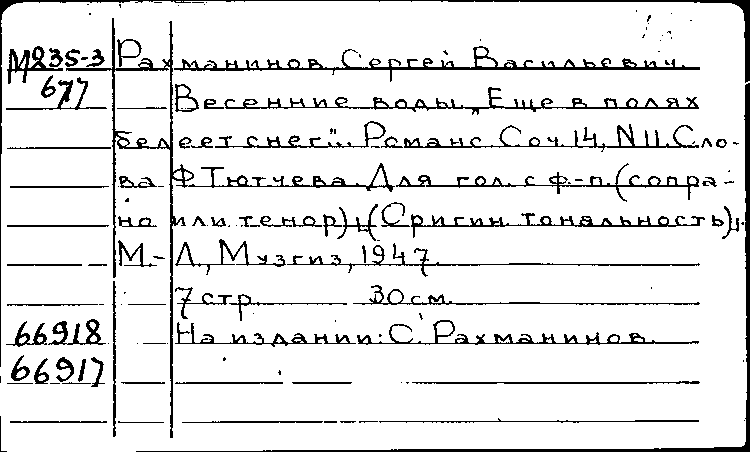 М235-3 Рахманинов, Сергей Васильевич.
677 Весенние воды „Еще в полях
белеет снег"... Романс. Соч. 14, N 11. Сло-
ва Ф. Тютчева. Для гол. с ф-п. (сопра-
но или тенор). (Оригин. тональность).
М.-Л., Музгиз, 1947.
7 стр. 30 см.
66918 На издании: С. Рахманинов.
66917